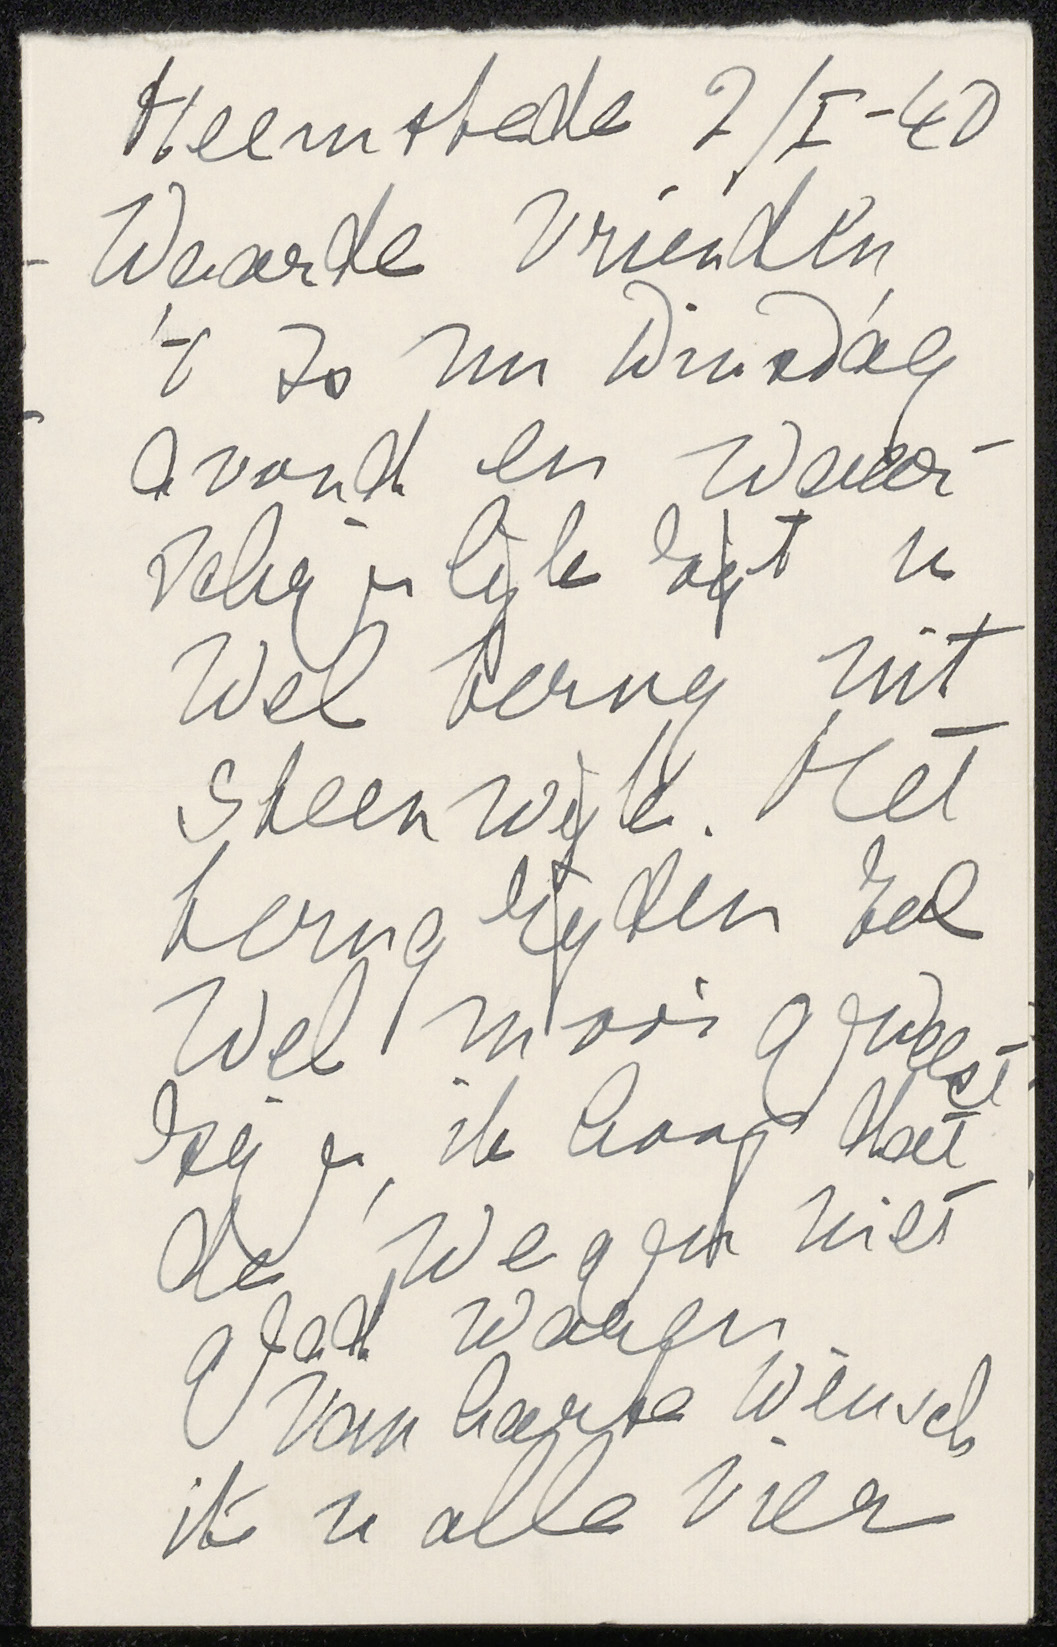 Heemstede 2/I-40
Waarde Vrienden,
't Is nu Dinsdag
avond en waar-
schijnlijk zijt u
wel terug uit
Steenwijk. Het
terugrijden zal
wel mooi geweest
zijn, ik hoop dat
de wegen niet
glad waren
Van harte wensch
ik u alle vier